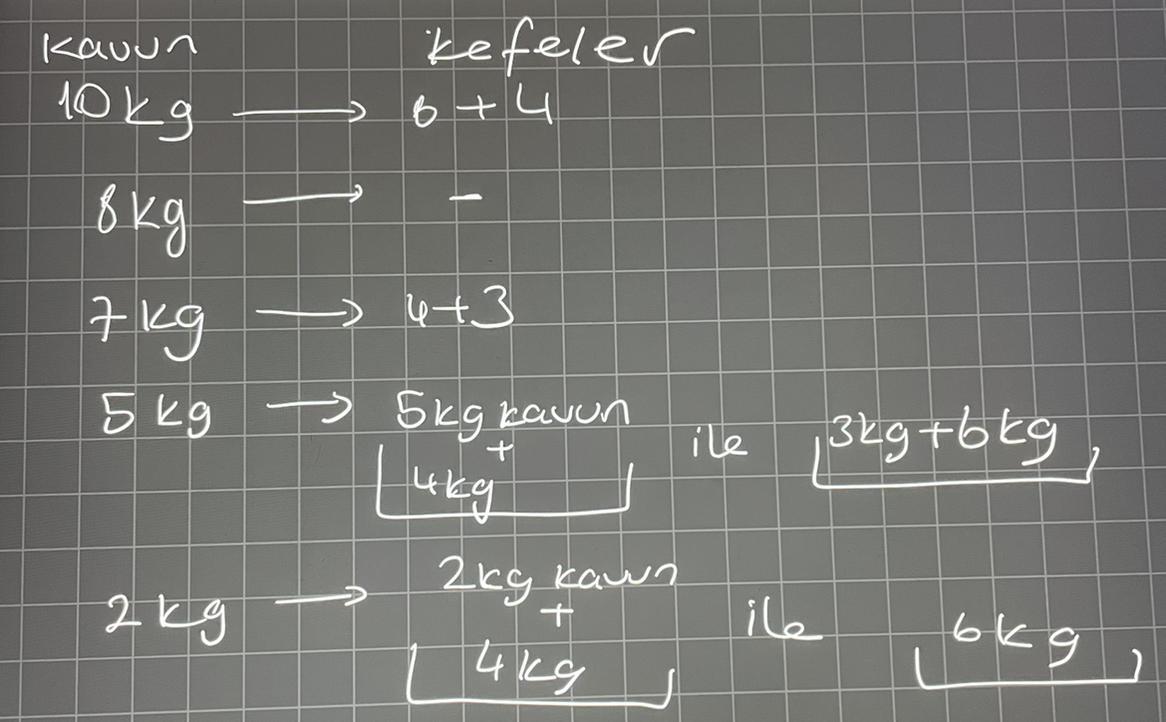 Kavun kefeler
10kg → 6+4
8kg → -
7kg → 4+3
5kg → 5kg kavun + 4kg ile 3kg+6kg
2kg → 2kg kavun + 4kg ile 6kg